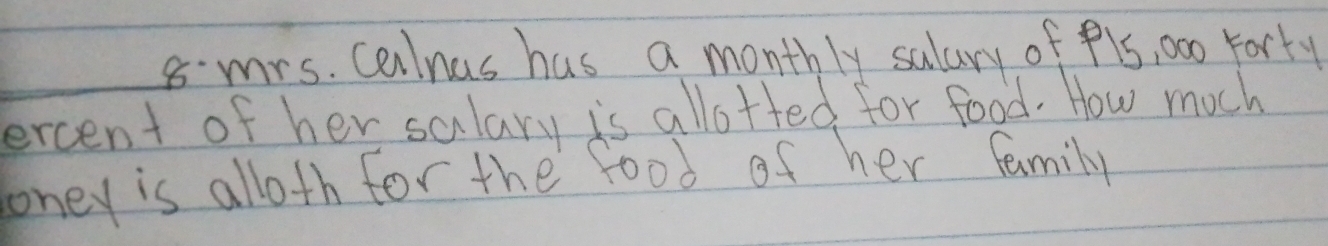 8. mrs. Cealnas has a monthly salary of ₱15,000 Forty
ercent of her salary is allotted for food. How much
oney is alloth for the food of her family